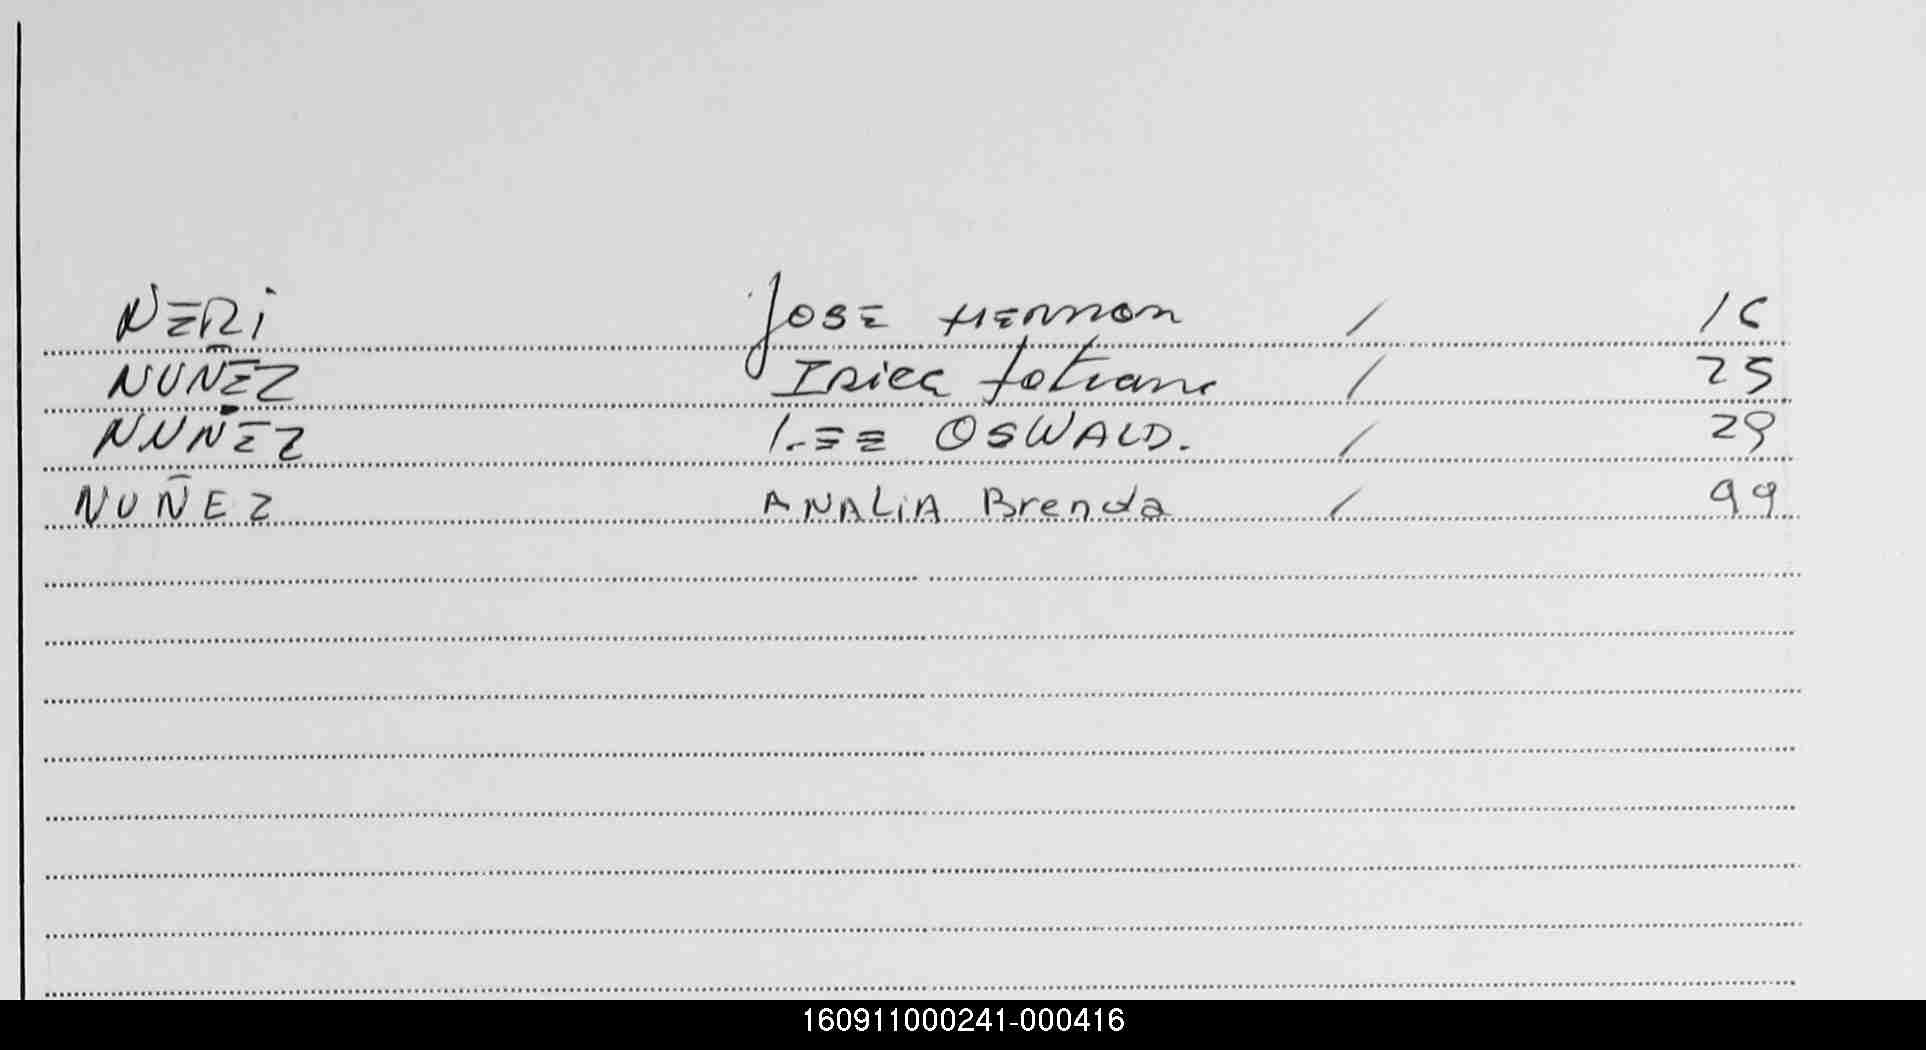 NERI JOSE HERNAN / 16
NUÑEZ / 25
NUÑEZ LEE OSWALD. / 29
NUÑEZ ANALIA Brenda / 99
160911000241-000416